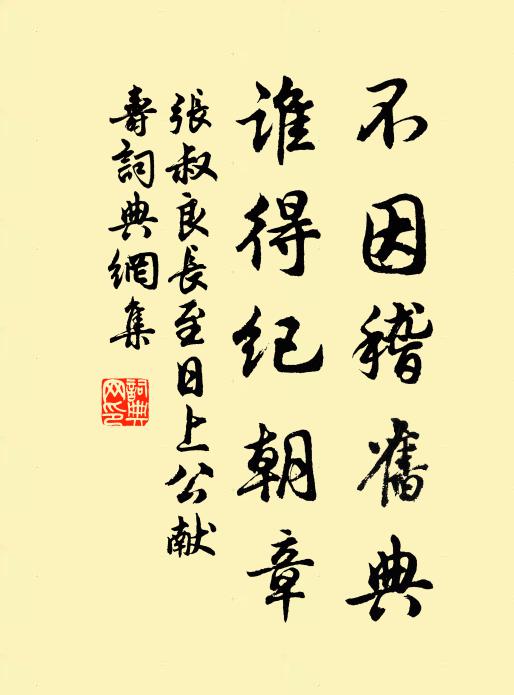 不因稽舊典
誰得紀朝章
張叔良長至日上公献
壽詞典網集
詞典
网印